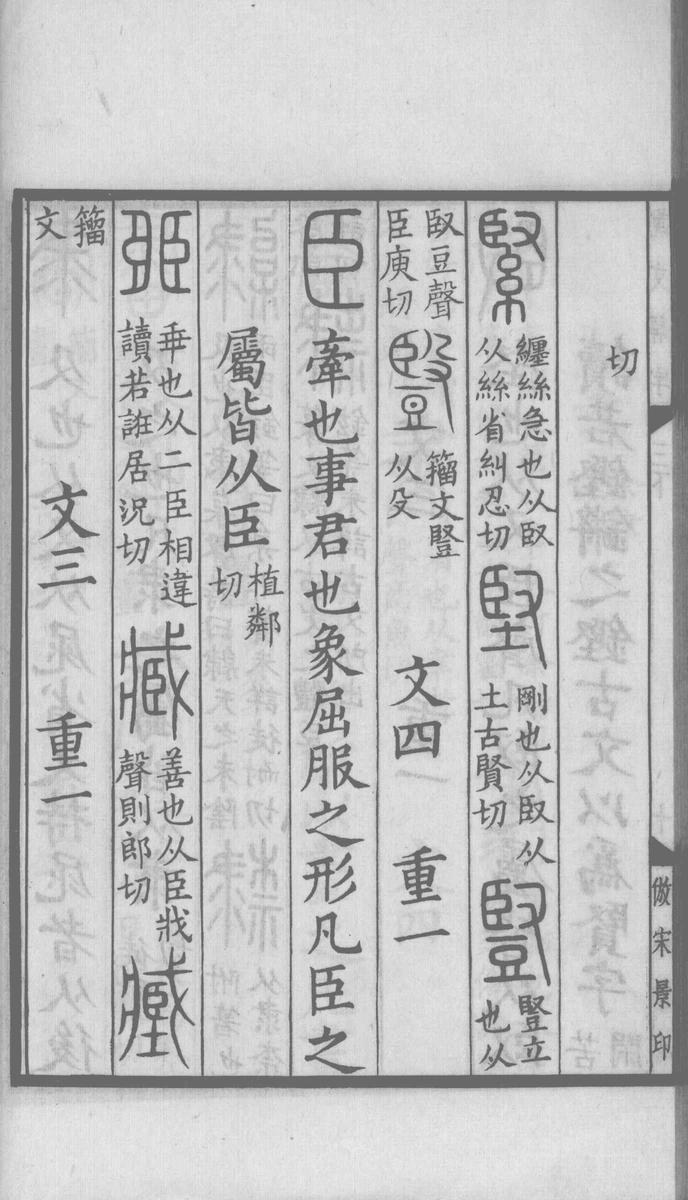 切
緊纏絲急也从臤从絲省糾忍切堅剛也从臤从土古賢切豎豎立也从
臤豆聲臣庾切豎籒文豎从殳 文四 重一
臣牽也事君也象屈服之形凡臣之
屬皆从臣植鄰切
𦣦乖也从二臣相違讀若誑居況切臧善也从臣戕聲則郎切𡒉
籒文 文三 重一
倣宋景印